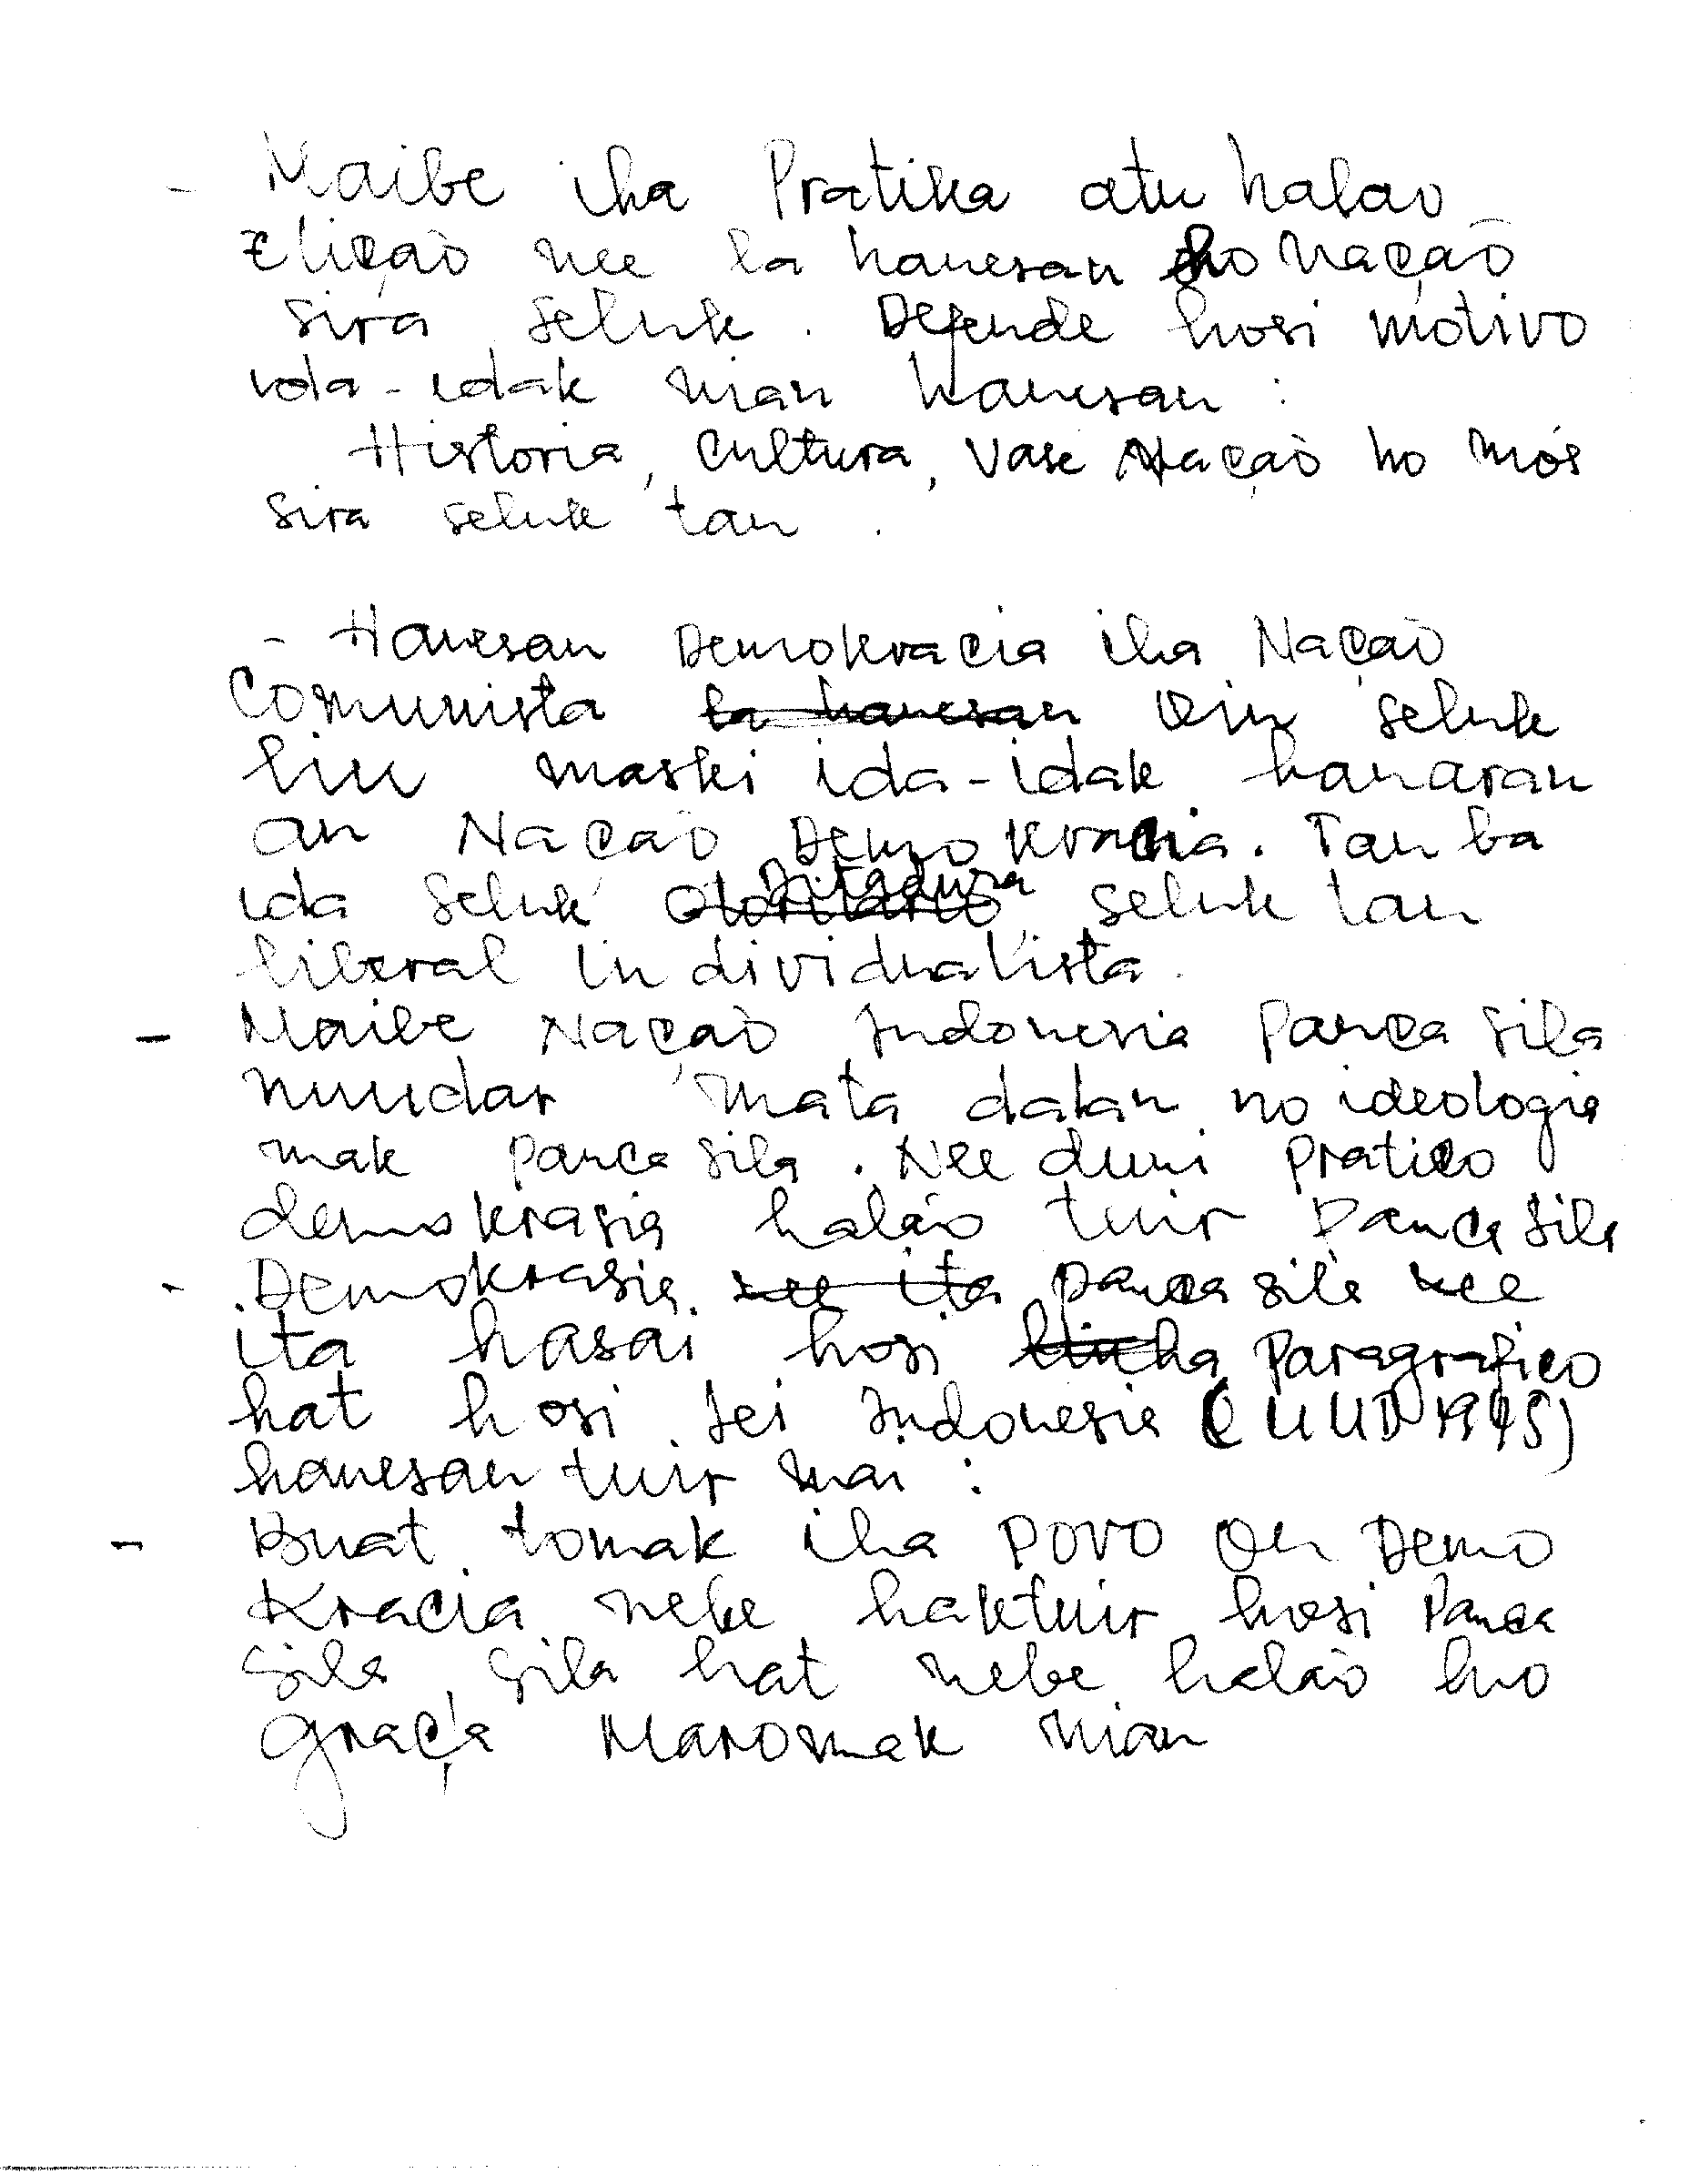 - Maibe iha Pratika atu halao
Elição nee la hanesan ho Nação
sira seluk. Defende hosi motivo
ida-idak nian hanesan:
Historia, Cultura, Vase Nação ho mós
sira seluk tan.
- Hanesan Demokracia iha Nação
Comunista la hanesan oin seluk
liu maski ida-idak hanaran
an Nação Demokracia. Tan ba
ida seluk Ditadura seluk tan
liberal individualista.
- Maibe Nação Indonesia Panca Sila
nuudar mata dalan no ideologia
mak Panca sila. Nee duni pratico
demokrasia halao tuir Panca Sila
- Demokrasia nee ita Panca sila nee
ita hasai hosi Paragrafico
hat hosi lei Indonesia (UUD 1945)
hanesan tuir mai:
- Buat tomak iha Povo oen Demo
Kracia nebe haktuir hosi Panca
Sila, Sila hat nebe halao ho
graça Maromak nian